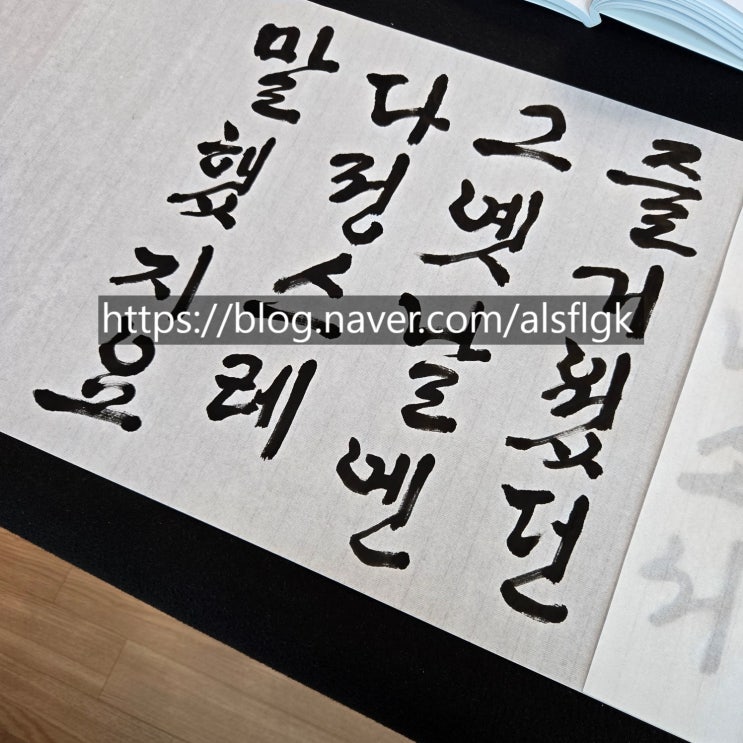 즐거웠던
그 옛날엔
다정스레
말했지요
https://blog.naver.com/alsflgk